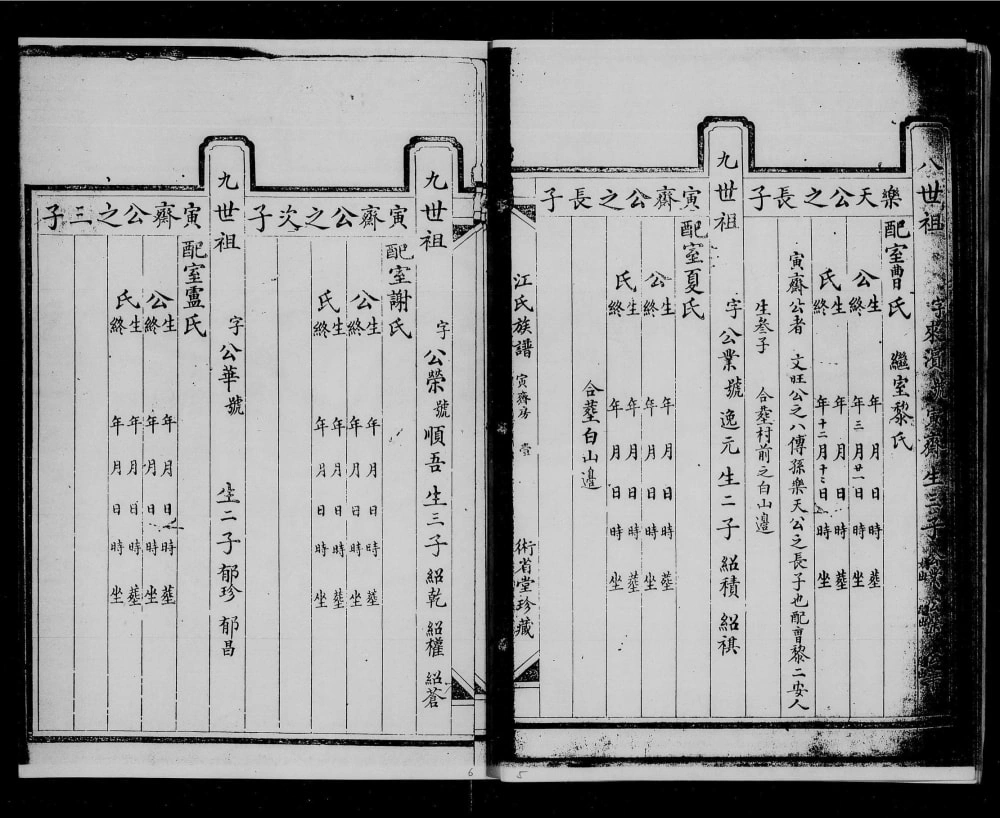 八世祖
字來濱號寅齋生三子
樂天公之長子
配室曹氏 繼室黎氏
公生 年 月 日 時 葬
終 年三月廿一日 時 坐
氏生 年 月 日 時 葬
終 年十二月十三日 時 坐
寅齋公者 文旺公之八傳孫樂天公之長子也配曹黎二安人
生叁子 合葬村前之白山邊
九世祖
字公業號逸元生二子 紹積 紹祺
寅齋公之長子
配室夏氏
公生 年 月 日 時 葬
終 年 月 日 時 坐
氏生 年 月 日 時 葬
終 年 月 日 時 坐
合葬白山邊
江氏族譜 寅齋房 壹 術省堂珍藏
九世祖
字公榮號順吾生三子 紹乾 紹權 紹蒼
寅齋公之次子
配室謝氏
公生 年 月 日 時 葬
終 年 月 日 時 坐
氏生 年 月 日 時 葬
終 年 月 日 時 坐
九世祖
字公華號 生二子 郁珍 郁昌
寅齋公之三子
配室盧氏
公生 年 月 日 時 葬
終 年 月 日 時 坐
氏生 年 月 日 時 葬
終 年 月 日 時 坐
5
6